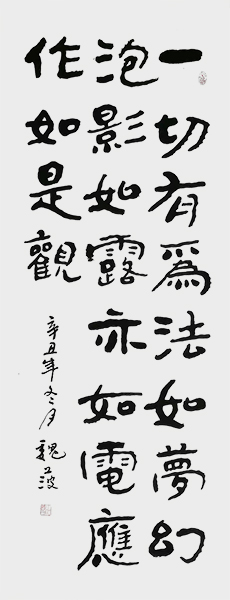 一切有為法如夢幻
泡影如露亦如電應
作如是觀
辛丑年冬月 魏